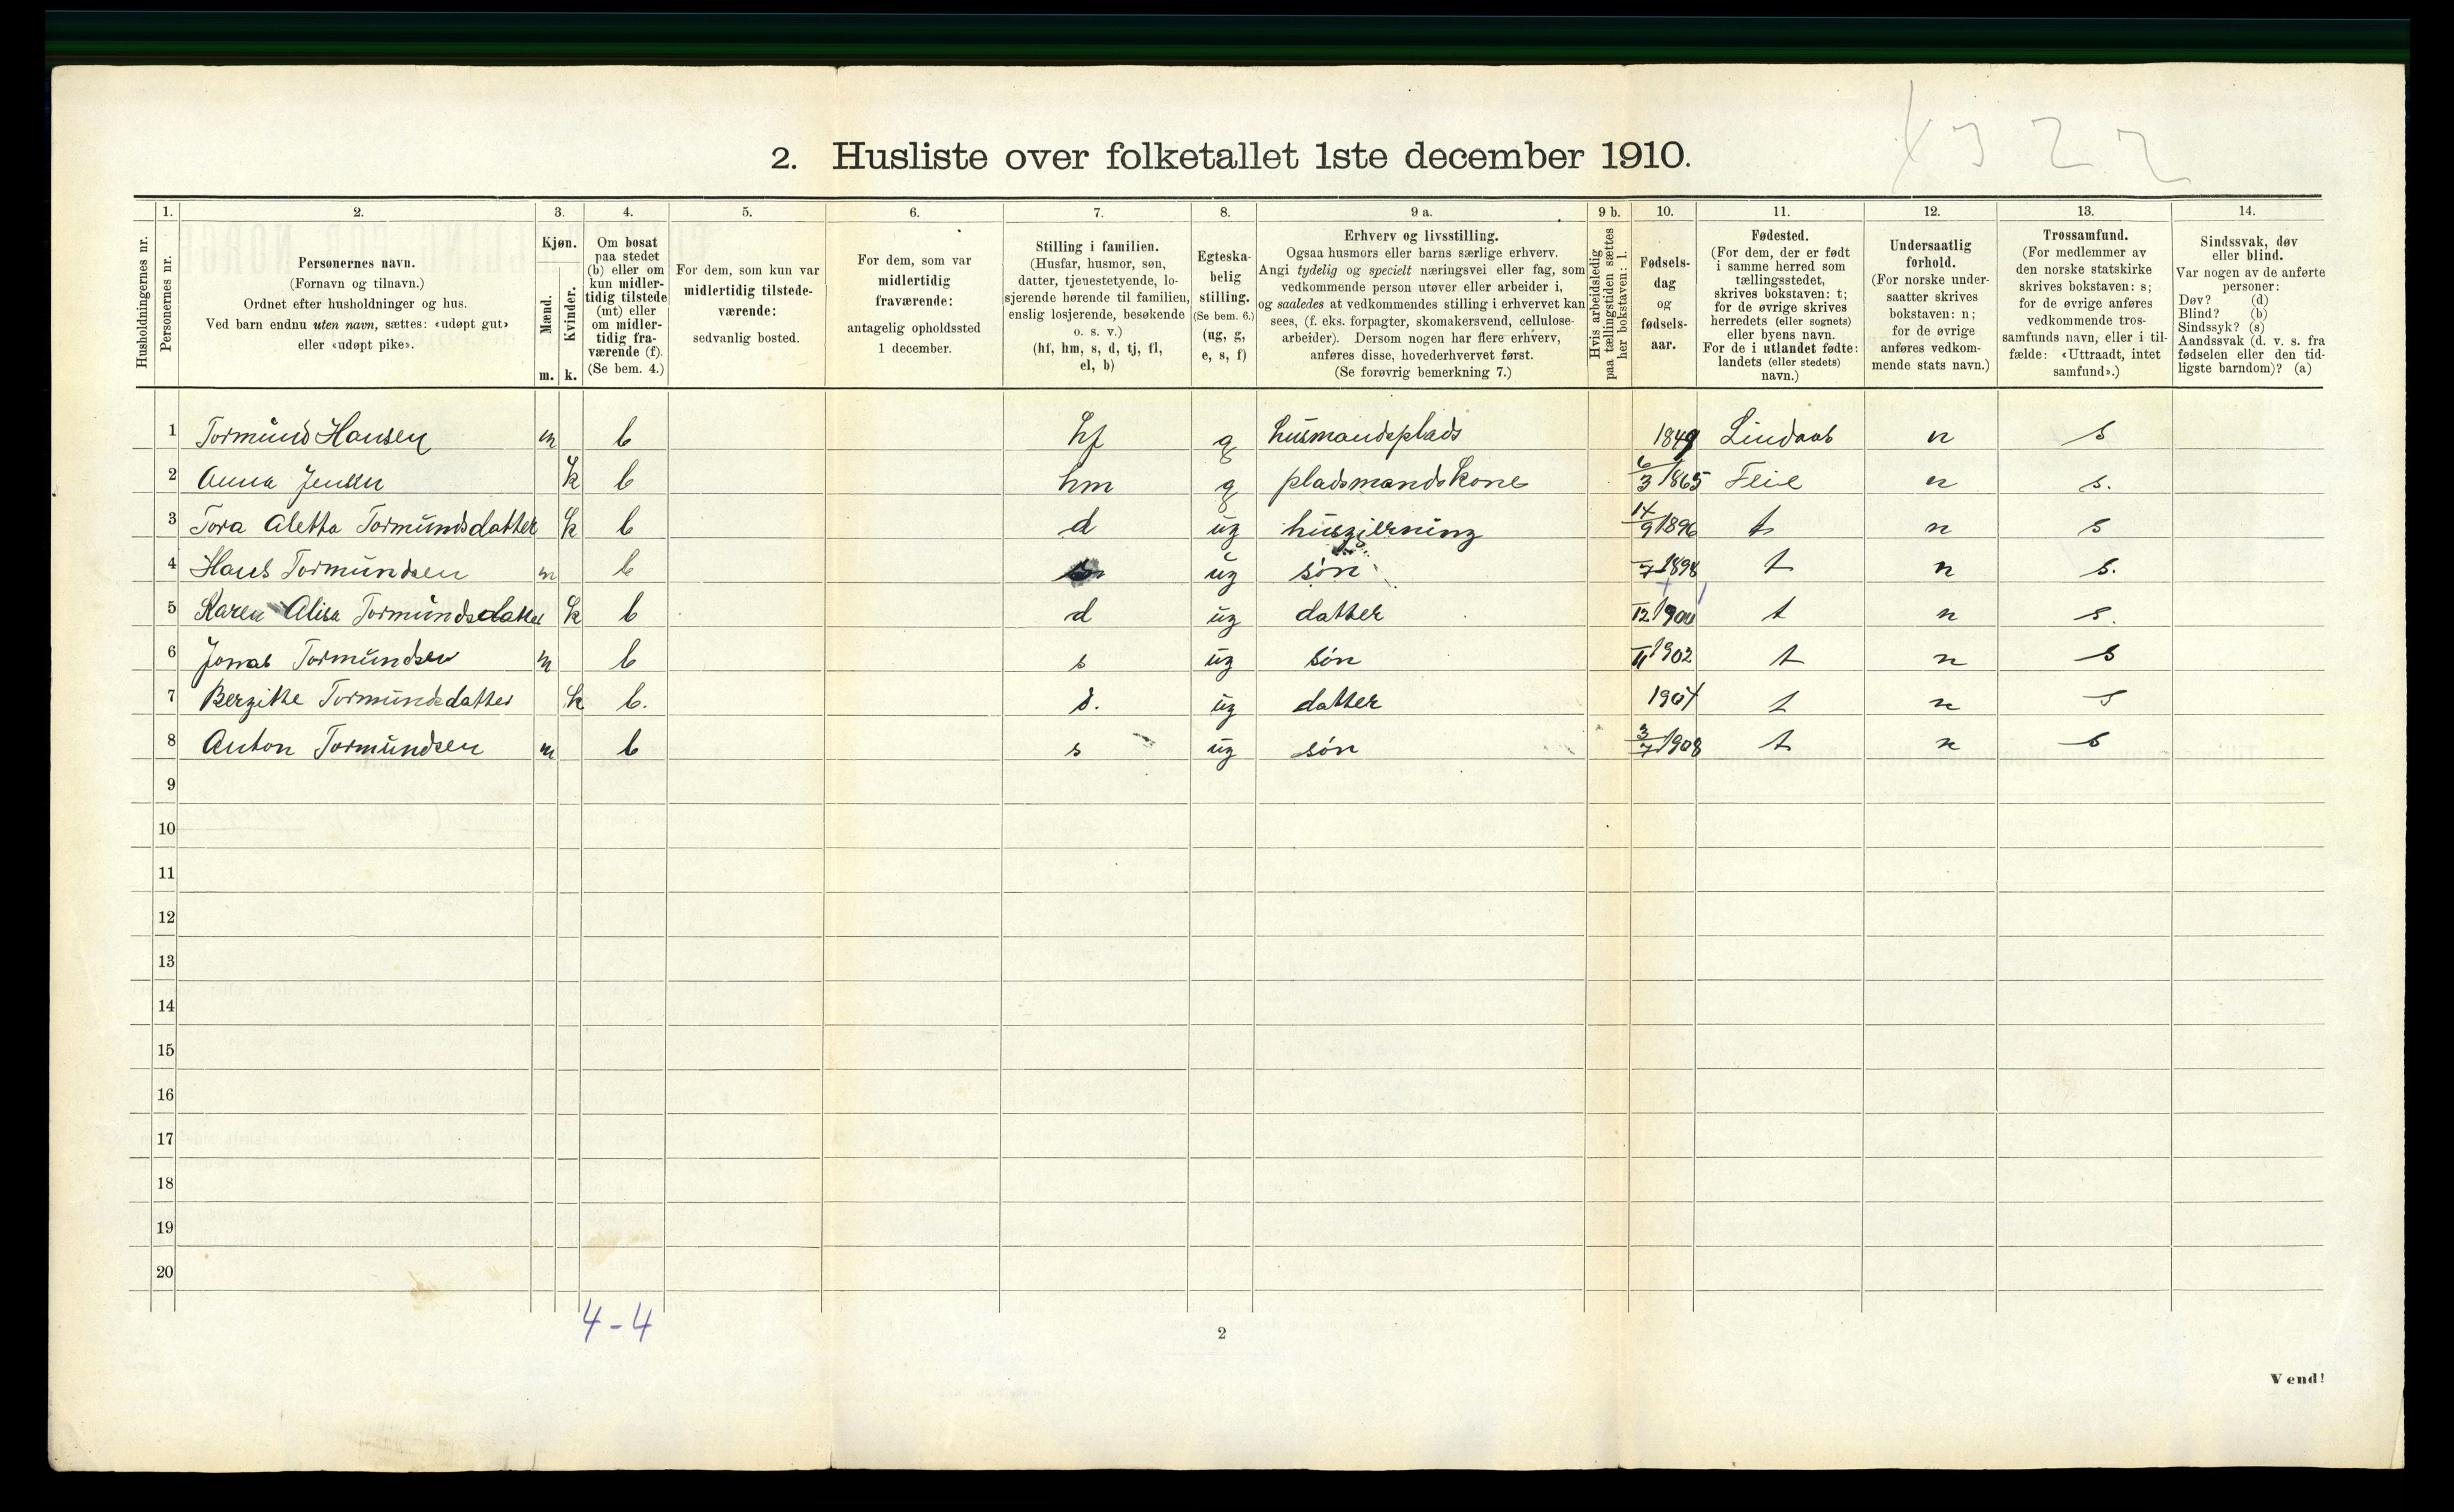 4322
2. Husliste over folketallet 1ste december 1910.
1. 2. 3. 4. 5. 6. 7. 8. 9 a. 9 b. 10. 11. 12. 13. 14.
Husholdningernes nr.
Personernes nr.
Personernes navn.
(Fornavn og tilnavn.)
Ordnet efter husholdninger og hus.
Ved barn endnu uten navn, sættes: «udøpt gut»
eller «udøpt pike».
Kjøn.
Mænd.
Kvinder.
m. k.
Om bosat
paa stedet
(b) eller om
kun midler-
tidig tilstede
(mt) eller
om midler-
tidig fra-
værende (f).
(Se bem. 4.)
For dem, som kun var
midlertidig tilstede-
værende:
sedvanlig bosted.
For dem, som var
midlertidig
fraværende:
antagelig opholdssted
1 december.
Stilling i familien.
(Husfar, husmor, søn,
datter, tjenestetyende, lo-
sjerende hørende til familien,
enslig losjerende, besøkende
o. s. v.)
(hf, hm, s, d, tj, fl,
el, b)
Egteska-
belig
stilling.
(Se bem. 6.)
(ug, g,
e, s, f)
Erhverv og livsstilling.
Ogsaa husmors eller barns særlige erhverv.
Angi tydelig og specielt næringsvei eller fag, som
vedkommende person utøver eller arbeider i,
og saaledes at vedkommendes stilling i erhvervet kan
sees, (f. eks. forpagter, skomakersvend, cellulose-
arbeider). Dersom nogen har flere erhverv,
anføres disse, hovederhvervet først.
(Se forøvrig bemerkning 7.)
Hvis arbeidsledig
paa tællingstiden sættes
her bokstaven: l.
Fødsels-
dag
og
fødsels-
aar.
Fødested.
(For dem, der er født
i samme herred som
tællingsstedet,
skrives bokstaven: t;
for de øvrige skrives
herredets (eller sognets)
eller byens navn.
For de i utlandet fødte:
landets (eller stedets)
navn.)
Undersaatlig
forhold.
(For norske under-
saatter skrives
bokstaven: n;
for de øvrige
anføres vedkom-
mende stats navn.)
Trossamfund.
(For medlemmer av
den norske statskirke
skrives bokstaven: s;
for de øvrige anføres
vedkommende tros-
samfunds navn, eller i til-
fælde: «Uttraadt, intet
samfund».)
Sindssvak, døv
eller blind.
Var nogen av de anførte
personer:
Døv? (d)
Blind? (b)
Sindssyk? (s)
Aandssvak (d. v. s. fra
fødselen eller den tid-
ligste barndom)? (a)
1 Tormund Hansen m b hf g husmandsplads 1849 Lindaas n s
2 Anna Jensen k b hm g pladsmandskone 6/3 1865 Feie n s.
3 Tora Aletta Tormundsdatter k b d ug husgjerning 14/9 1896 t n s
4 Hans Tormundsen m b s ug søn /7 1898 t n s.
5 Karen Alisa Tormundsdatter k b d ug datter /12 1900 t n s.
6 Jonas Tormundsen m b s ug søn /11 1902 t n s
7 Bergitte Tormundsdatter k b. d. ug datter 1904 t n s
8 Anton Tormundsen m b s ug søn 3/7 1908 t n s
9
10
11
12
13
14
15
16
17
18
19
20
4-4
2
Vend!